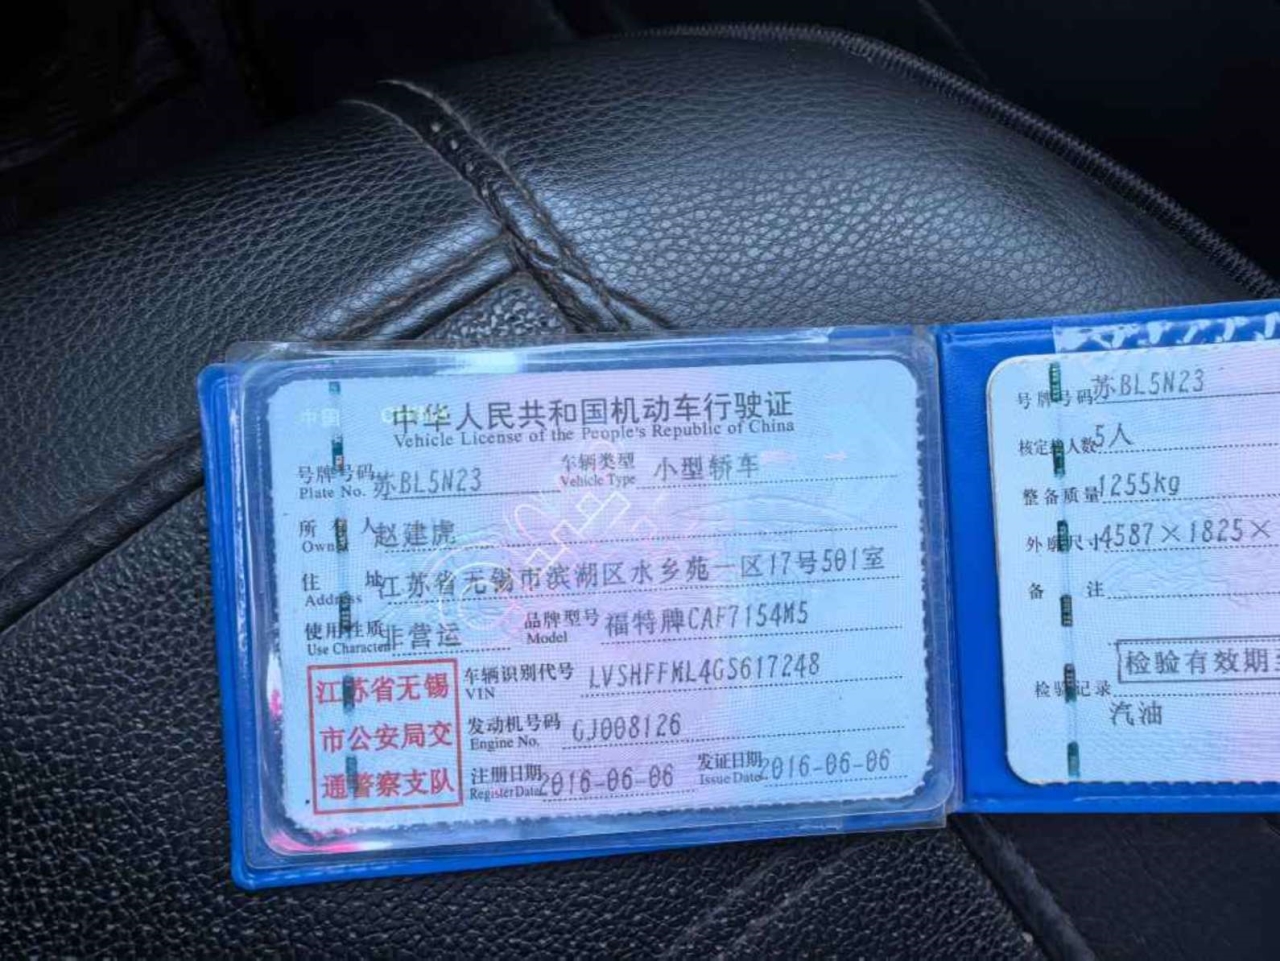 中华人民共和国机动车行驶证
Vehicle License of the People's Republic of China
号牌号码 苏BL5N23 车辆类型 小型轿车
Plate No. Vehicle Type
所有人 赵建虎
Owner
住址 江苏省无锡市滨湖区水乡苑一区17号501室
Address
使用性质 非营运 品牌型号 福特牌CAF7154M5
Use Character Model
江苏省无锡
市公安局交
通警察支队
车辆识别代号 LVSHFFML4GS617248
VIN
发动机号码 GJ008126
Engine No.
注册日期 2016-06-06 发证日期 2016-06-06
Register Date Issue Date
号牌号码 苏BL5N23
核定载人数 5人
整备质量 1255kg
外廓尺寸 4587×1825×
备注
检验有效期
检验记录
汽油